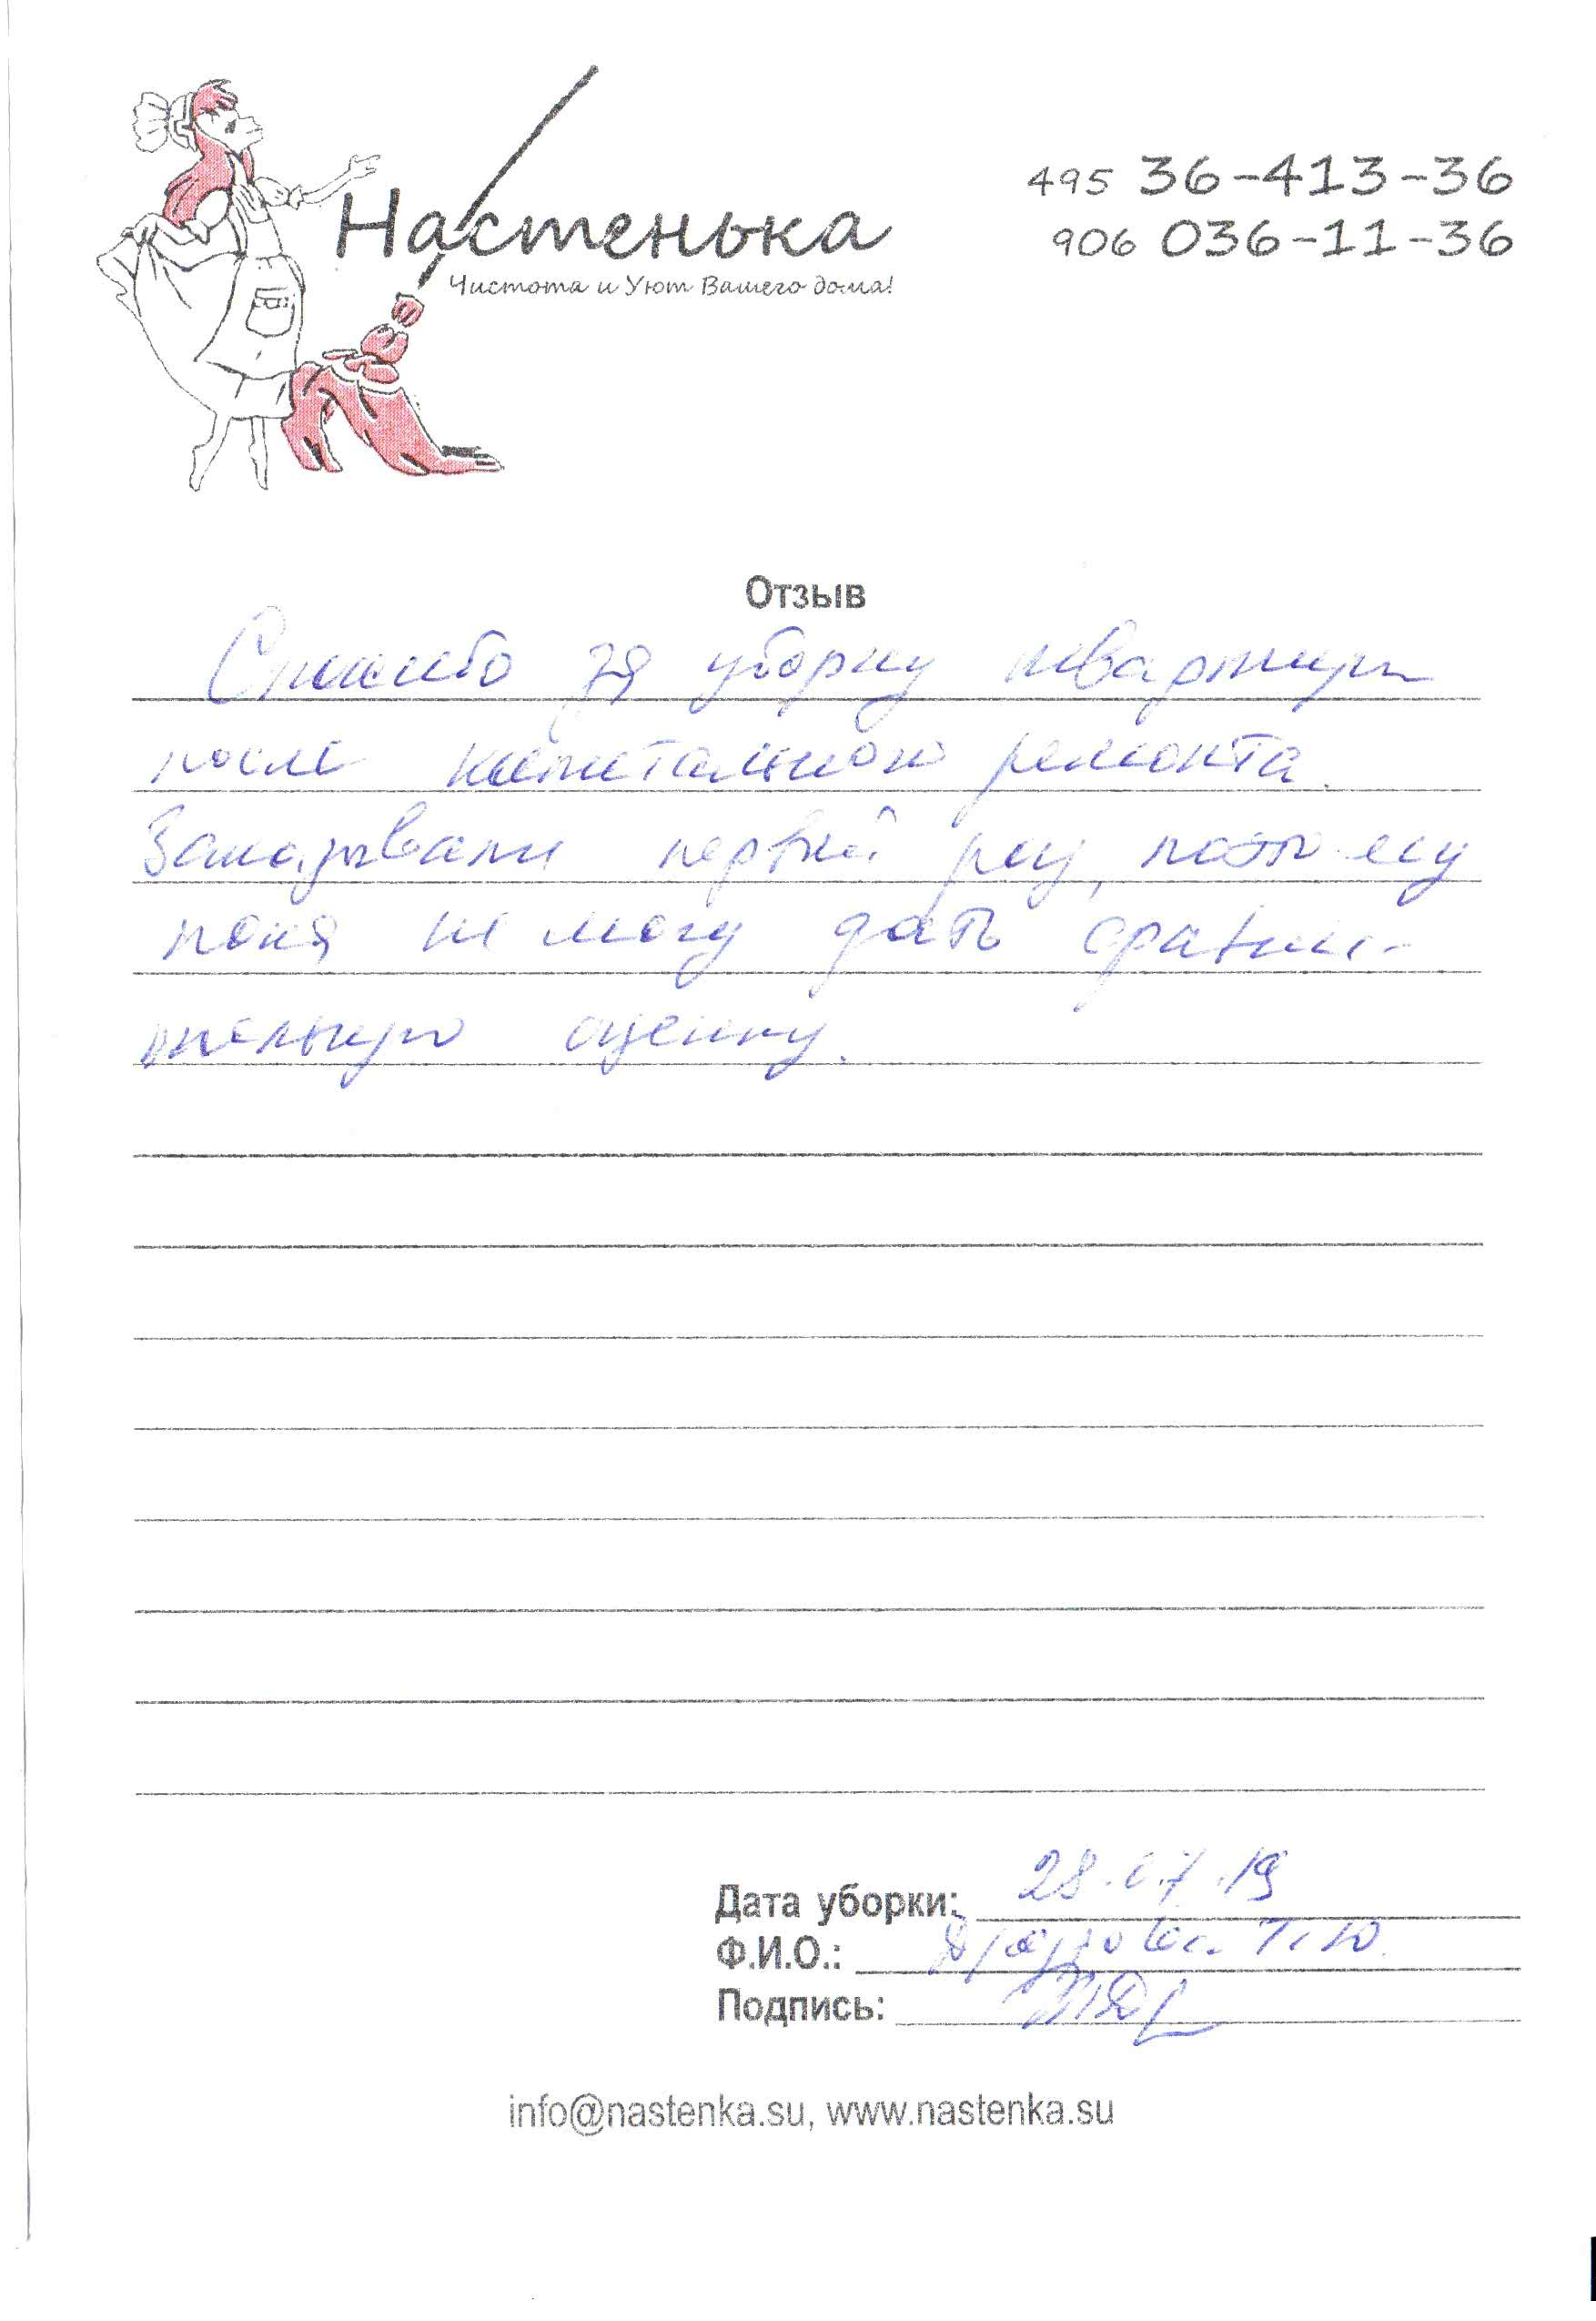 Настенька
Чистота и Уют Вашего дома!
495 36-413-36
906 036-11-36
Отзыв
Спасибо за уборку квартиры
после капитального ремонта.
Заказывали первый раз, поэтому
пока не могу дать сравни-
тельную оценку.
Дата уборки: 28.07.19
Ф.И.О.: Т.Ю.
Подпись:
info@nastenka.su, www.nastenka.su